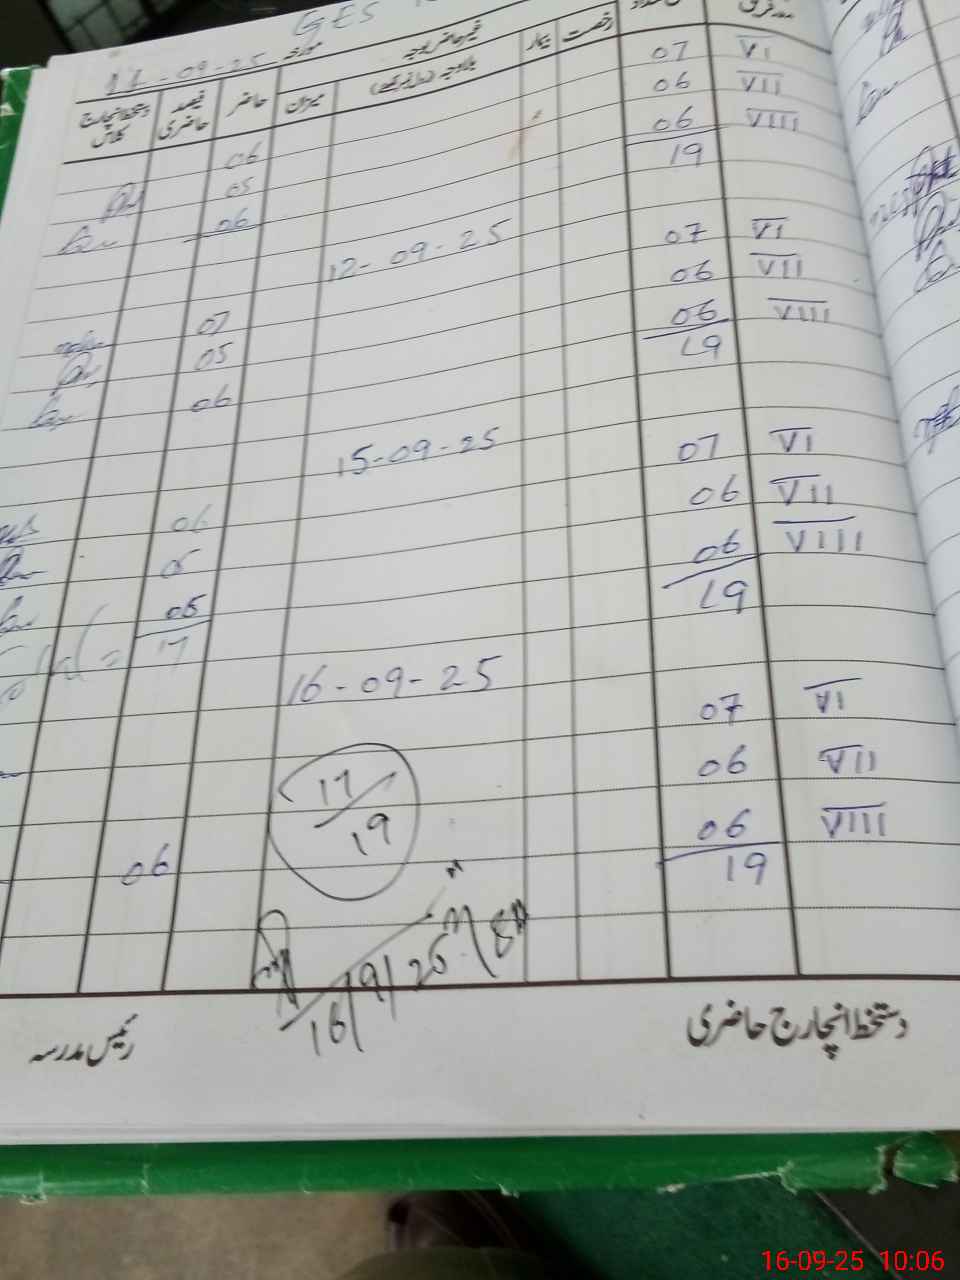 GES
11-09-25 مورخہ
غیر حاضر بوجہ
دستخط انچارج کلاس فیصد حاضری حاضر میزان بلاوجہ بیمار رخصت
06 07 VI
05 06 VII
06 06 VIII
19
12-09-25
07 07 VI
05 06 VII
06 06 VIII
19
15-09-25
06 07 VI
05 06 VII
05 06 VIII
17 19
16-09-25
07 VI
06 VII
17/19
06 06 VIII
19
16/9/25
رئیس مدرسہ دستخط انچارج حاضری
16-09-25 10:06